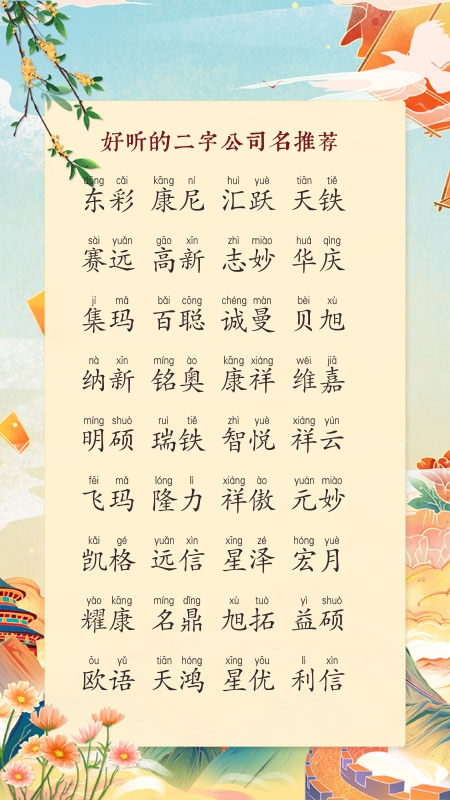 好听的二字公司名推荐
dōng cǎi kāng ní huì yuè tiān tiě
东彩 康尼 汇跃 天铁
sài yuǎn gāo xīn zhì miào huá qìng
赛远 高新 志妙 华庆
jí mǎ bǎi cōng chéng màn bèi xù
集玛 百聪 诚曼 贝旭
nà xīn míng ào kāng xiáng wéi jiā
纳新 铭奥 康祥 维嘉
míng shuò ruì tiě zhì yuè xiáng yún
明硕 瑞铁 智悦 祥云
fēi mǎ lóng lì xiáng ào yuán miào
飞玛 隆力 祥傲 元妙
kǎi gé yuǎn xìn xīng zé hóng yuè
凯格 远信 星泽 宏月
yào kāng míng dǐng xù tuò yì shuò
耀康 名鼎 旭拓 益硕
ōu yǔ tiān hóng xīng yōu lì xìn
欧语 天鸿 星优 利信